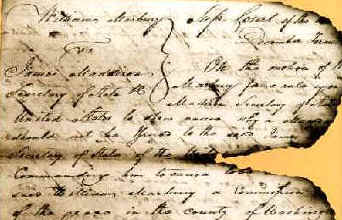 William Marbury Court of the
December Term
vs
James Madison On the motion of
Secretary of State Marbury
Madison Secretary of State
United States to shew cause why a
should not be issued to the said James
Secretary of State of the
Commanding him to cause to
said William Marbury a Commission
of the peace in the county of